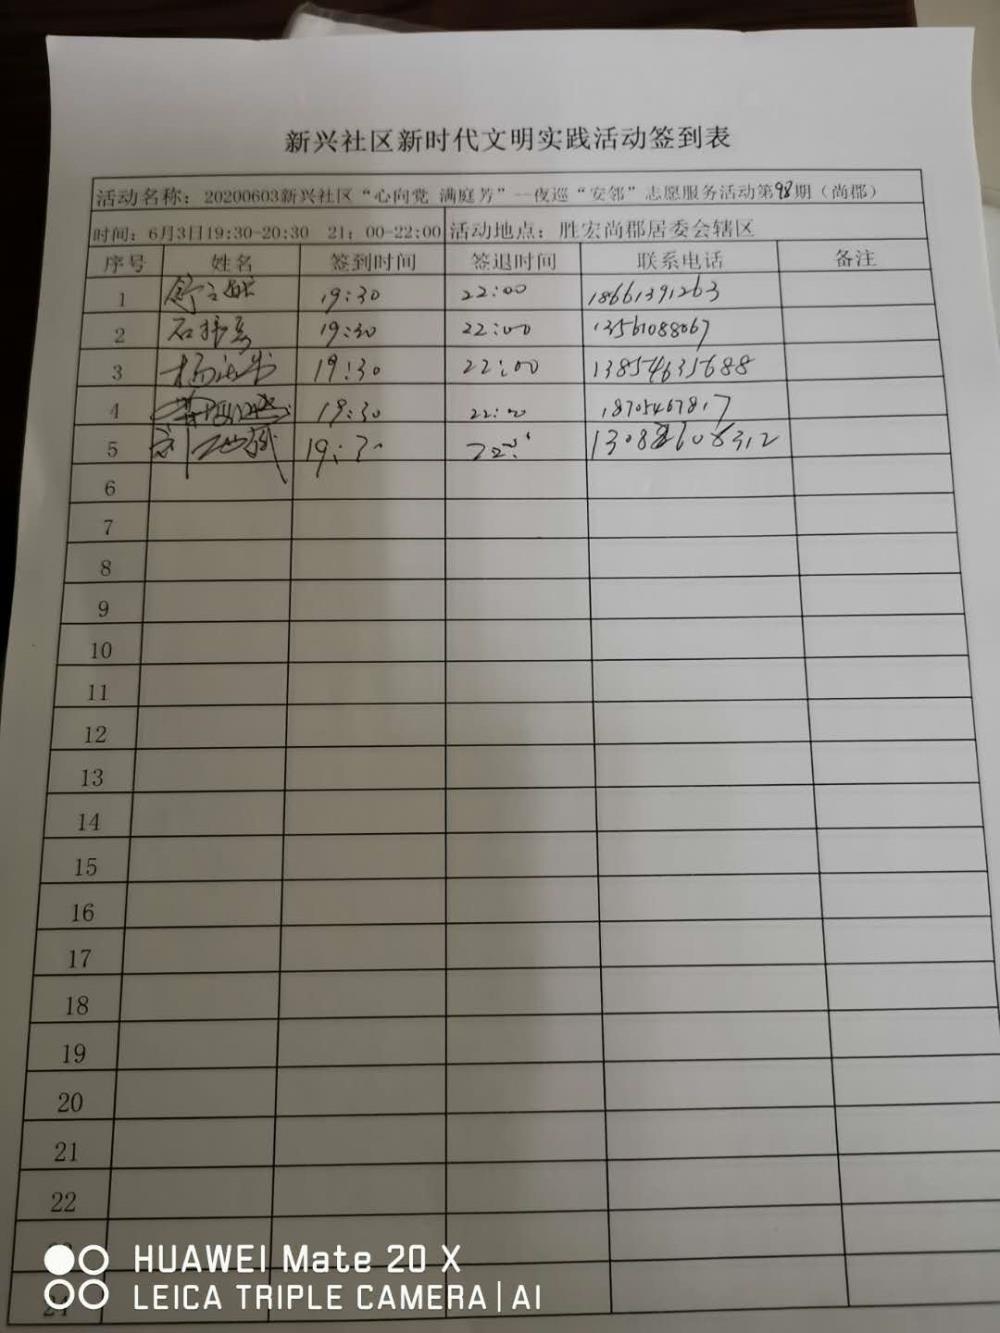 新兴社区新时代文明实践活动签到表
活动名称：20200603新兴社区“心向党 满庭芳”一夜巡“安邻”志愿服务活动第98期（尚郡）
时间：6月3日19:30-20:30 21：00-22:00 活动地点：胜宏尚郡居委会辖区
序号 姓名 签到时间 签退时间 联系电话 备注
1 19:30 22:00 18661391263
2 19:30 22:00 13561088067
3 19:30 22:00 13854631688
4 19:30
5
6
7
8
9
10
11
12
13
14
15
16
17
18
19
20
21
22
24
HUAWEI Mate 20 X
LEICA TRIPLE CAMERA | AI